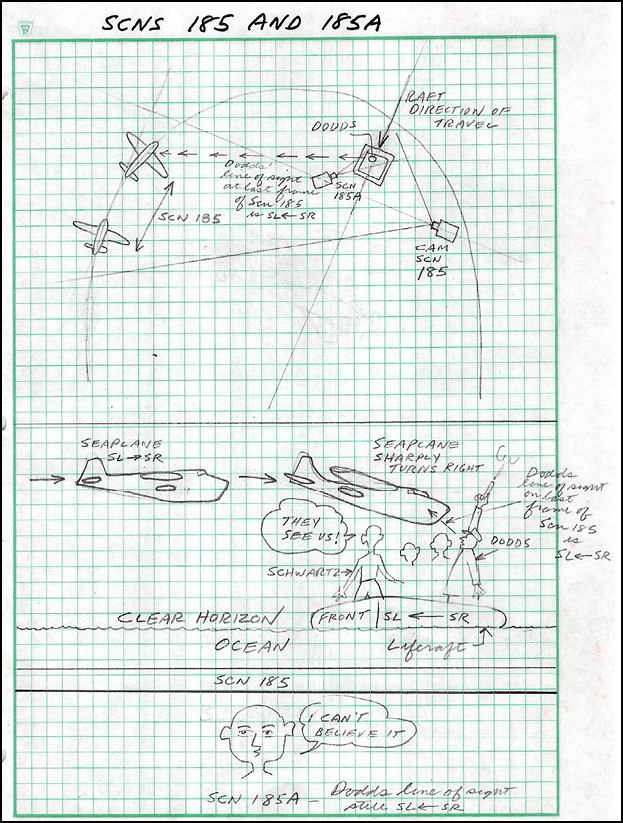 SCNS 185 AND 185A
RAFT
DIRECTION OF
TRAVEL
DODDS
Dodds'
line of sight
at last frame
of Scn 185
is SL ← SR
SCN
185A
SCN 185
CAM
SCN
185
SEAPLANE
SL → SR
SEAPLANE
SHARPLY
TURNS RIGHT
Dodds
line of sight
on last
frame of
Scn 185
is
SL ← SR
THEY
SEE US!
DODDS
SCHWARTZ
CLEAR HORIZON
FRONT SL ← SR
OCEAN
Liferaft
SCN 185
I CAN'T
BELIEVE IT
SCN 185A – Dodds line of sight
still SL ← SR